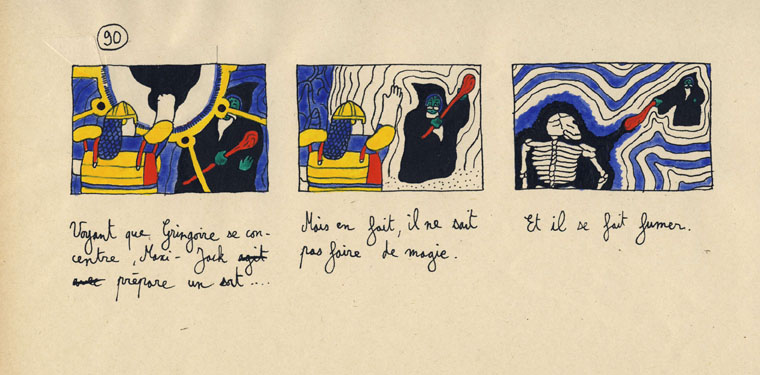 90
Voyant que Gringoire se con-
centre, Maxi-Jack agit
avec prépare un sort....
Mais en fait, il ne sait
pas faire de magie.
Et il se fait fumer.